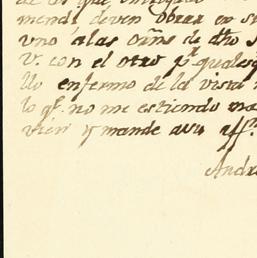 de las que
mende deven obrar en su
uno á las orns de dho S
V. con el otro pr qualesq
llo enfermo de la vista
lo qe no me estiendo ma
vien y mande a su affmo
Andre